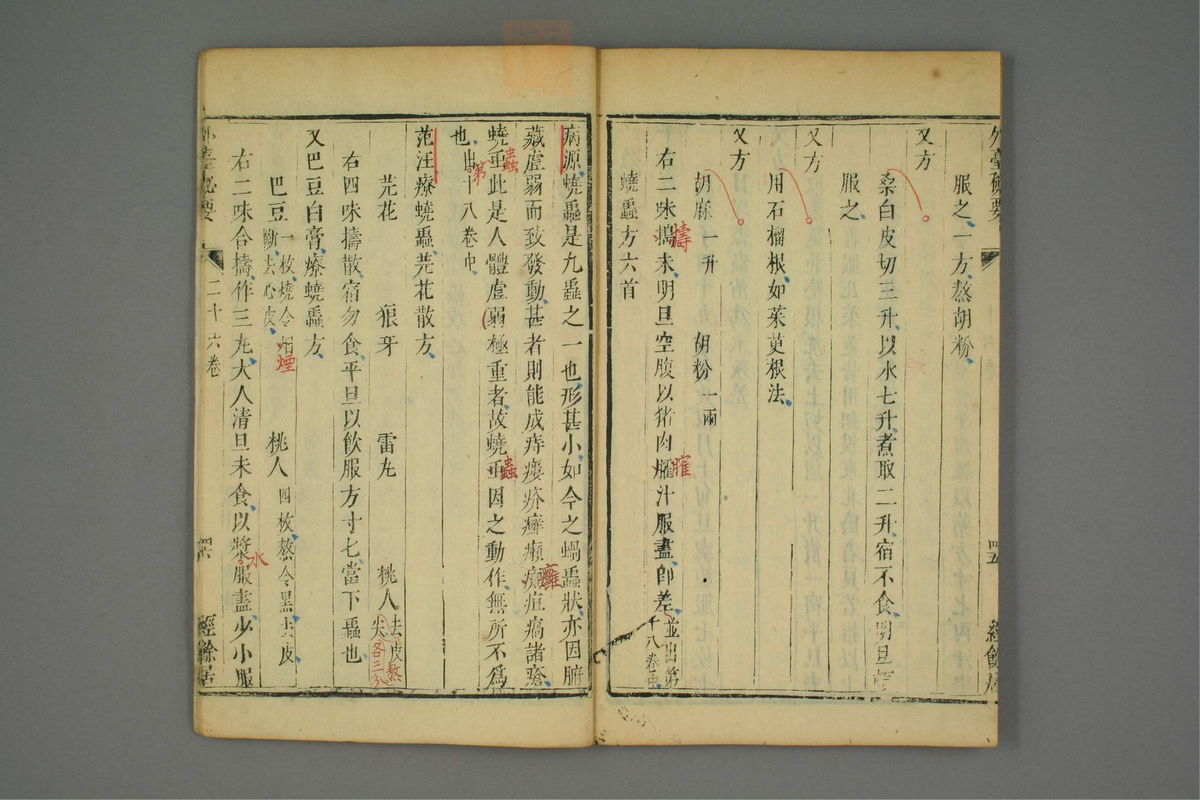 服之、一方、熬胡粉、
又方
桑白皮切三升、以水七升、煮取二升、宿不食、明旦
服之、
又方
用石榴根、如茱萸根法、
又方
胡麻一升 胡粉一兩
右二味擣末、明旦空腹以猪肉臛汁服盡、即差、並出第十八卷中
蟯蟲方六首
病源、蟯蟲是九蟲之一也、形甚小、如今之蝸蟲狀、亦因腑
藏虛弱而致發動、甚者則能成痔瘻疥癬癩癰疽瘑諸瘡、
蟯蟲此是人體虛弱極重者、故蟯蟲因之動作、無所不爲
也、出第十八卷中、
范汪療蟯蟲、芫花散方、
芫花 狼牙 雷丸 桃人去皮尖熬各三分
右四味擣散、宿勿食、平旦以飲服方寸匕、當下蟲也
又巴豆白膏、療蟯蟲方、
巴豆一枚燒令煙斷、去心皮、 桃人四枚熬令黑去皮
右二味合擣、作三丸、大人清旦未食、以漿水服盡、少小服
外臺秘要
二十六卷
四五
四六
經餘居